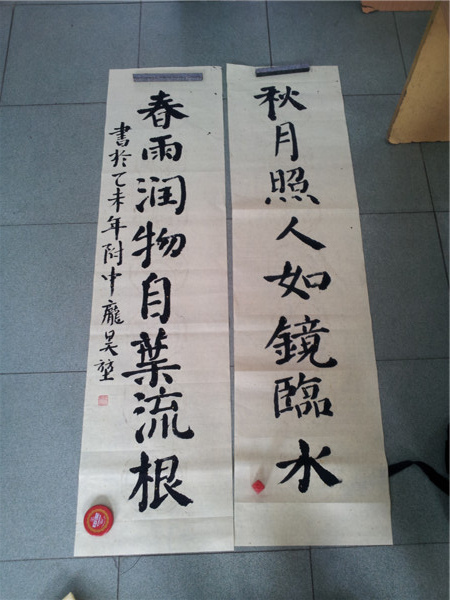 秋月照人如鏡臨水
春雨润物自葉流根
書於乙未年附中龐昊堃